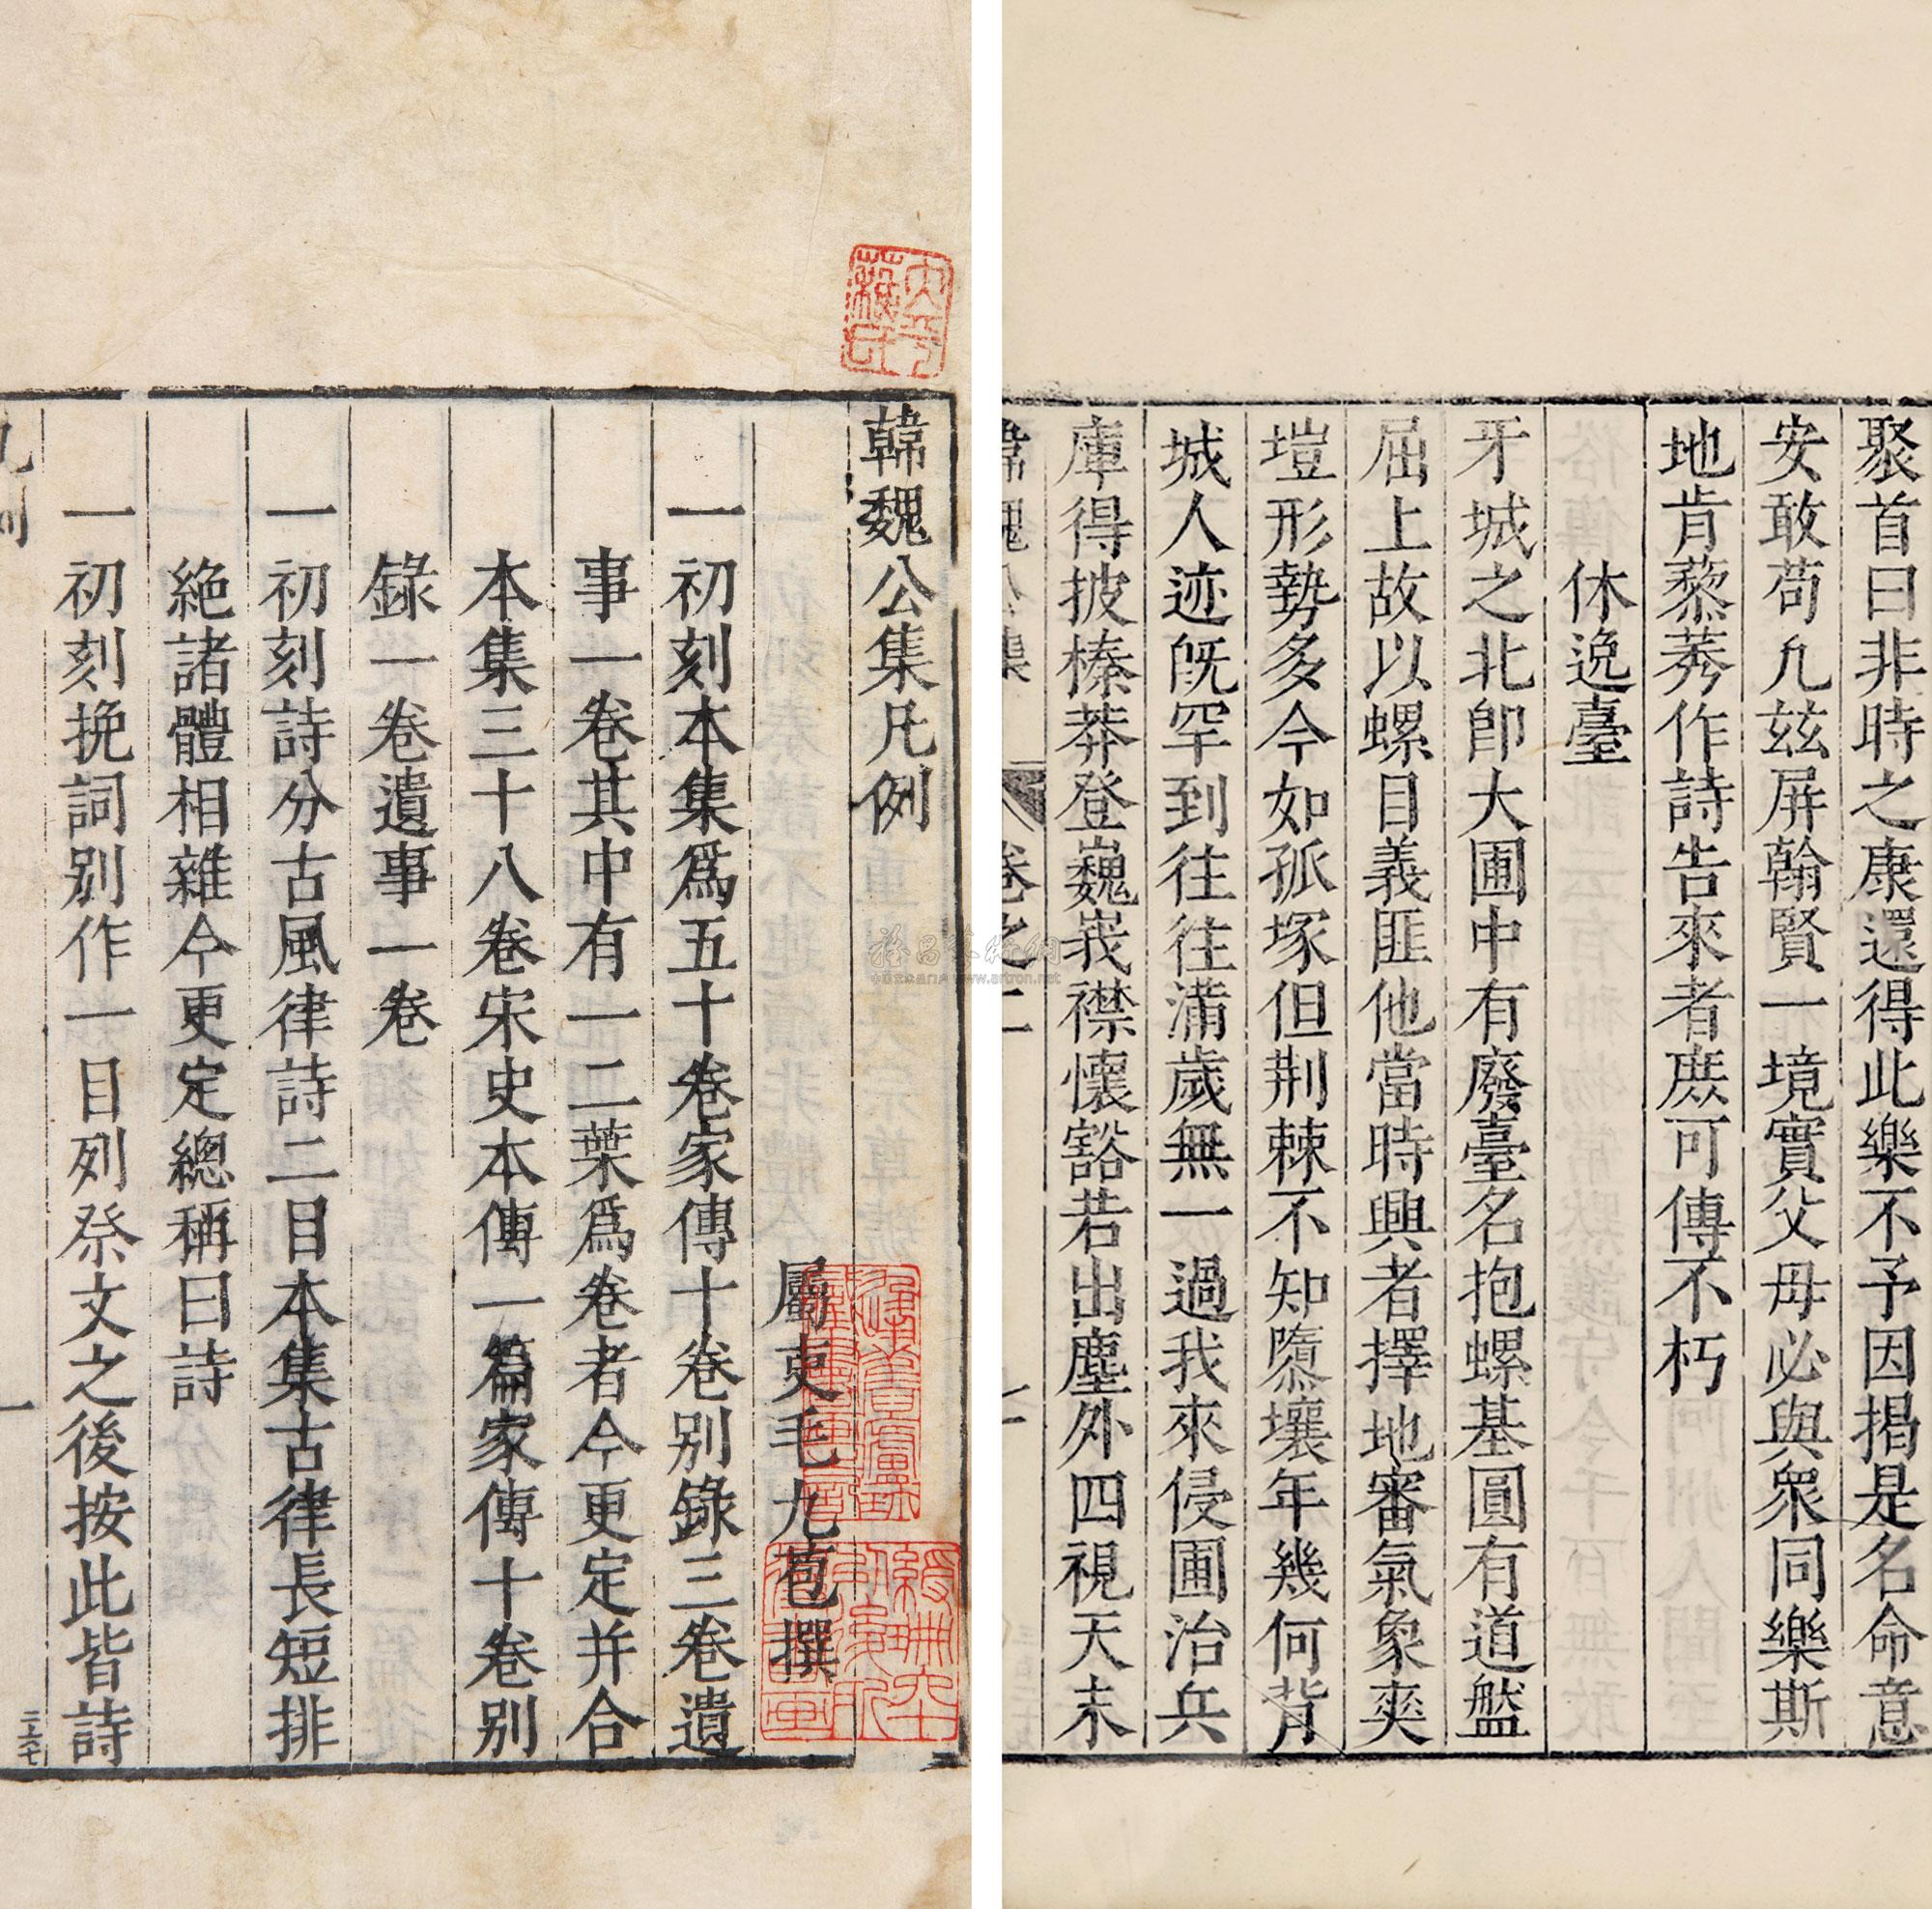 韓魏公集凡例
屬吏毛九苞撰
一初刻本集爲五十卷家傳十卷別錄三卷遺
事一卷其中有一二葉爲卷者今更定并合
本集三十八卷宋史本傳一篇家傳十卷別
錄一卷遺事一卷
一初刻詩分古風律詩二目本集古律長短排
絶諸體相雜今更定總稱曰詩
一初刻挽詞別作一目列祭文之後按此皆詩
凡例
一
聚首曰非時之康還得此樂不予因揭是名命意
安敢苟凢玆屏翰賢一境實父母必與衆同樂斯
地肯藜莠作詩告來者庻可傳不朽
休逸臺
牙城之北即大圃中有廢臺名抱螺基圓有道盤
屈上故以螺目義匪他當時興者擇地審氣象夾
塏形勢多今如孤塚但荆棘不知隳壤年幾何背
城人迹旣罕到往往滿歲無一過我來侵圃治兵
庫得披榛莽登巍峩襟懷豁若出塵外四視天末
韓魏公集
卷之二
www.artron.net